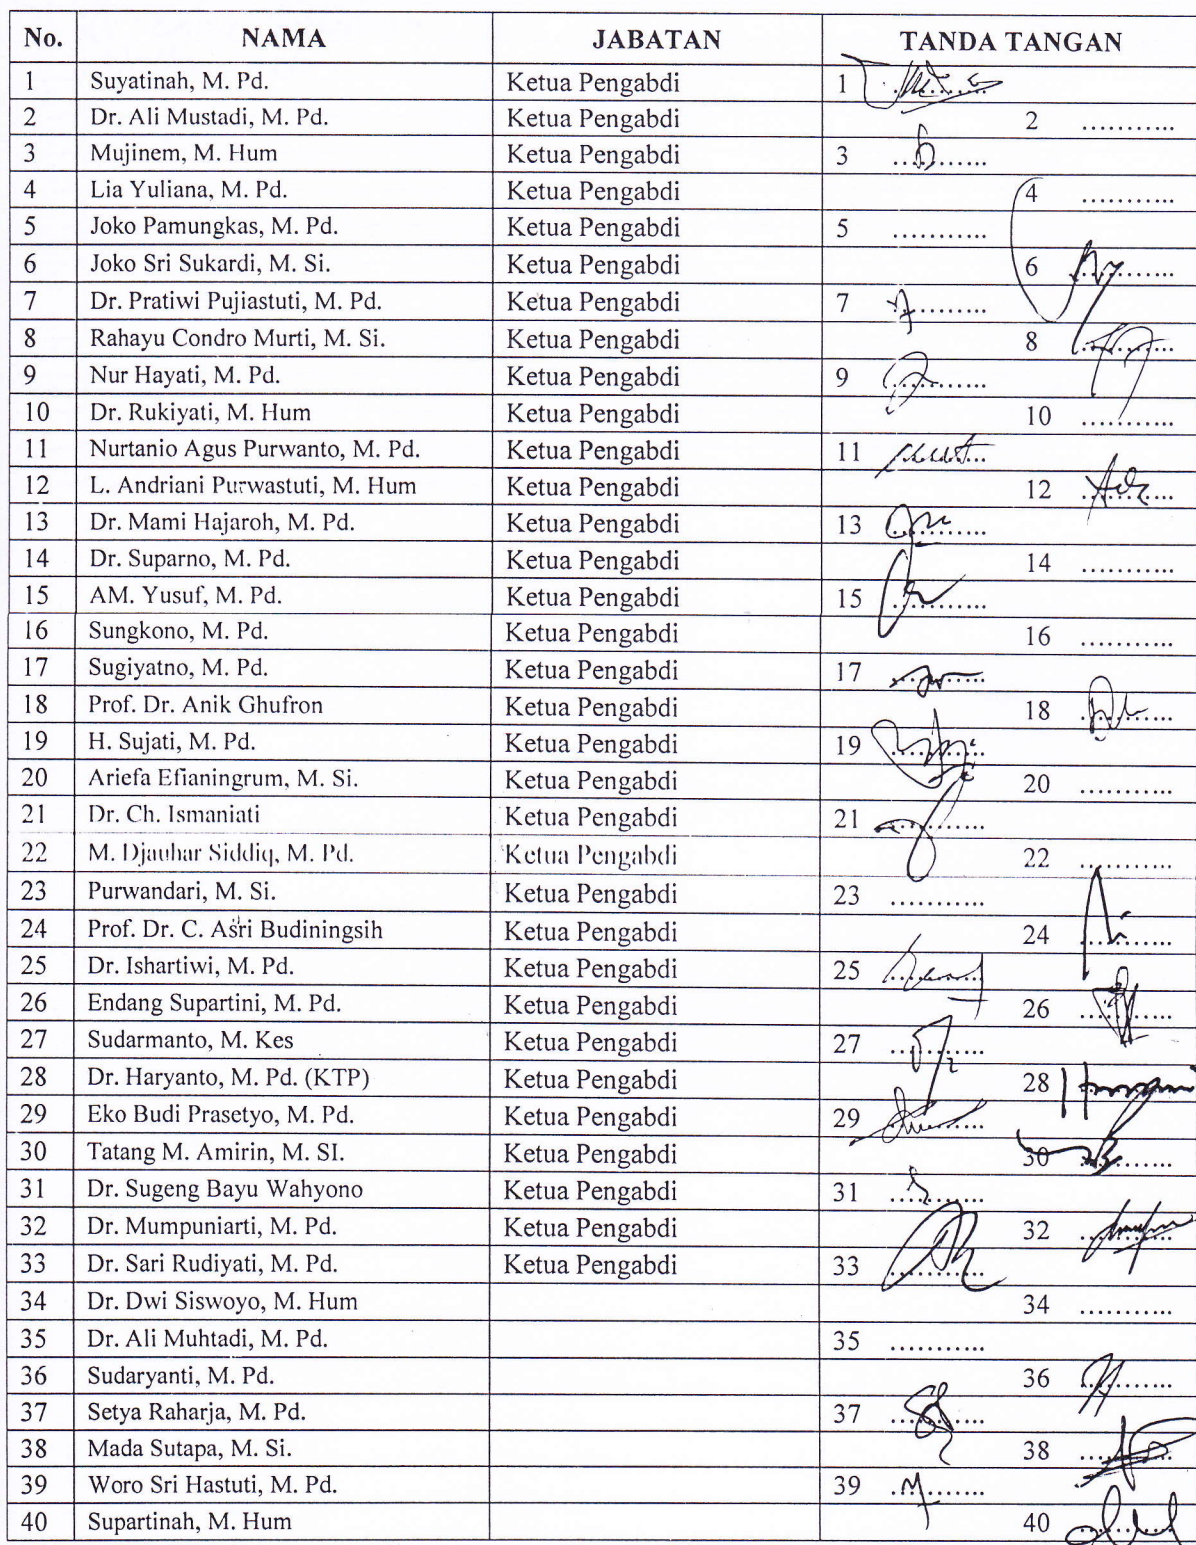 No. NAMA JABATAN TANDA TANGAN
1 Suyatinah, M. Pd. Ketua Pengabdi 1 ...........
2 Dr. Ali Mustadi, M. Pd. Ketua Pengabdi 2 ...........
3 Mujinem, M. Hum Ketua Pengabdi 3 ...........
4 Lia Yuliana, M. Pd. Ketua Pengabdi 4 ...........
5 Joko Pamungkas, M. Pd. Ketua Pengabdi 5 ...........
6 Joko Sri Sukardi, M. Si. Ketua Pengabdi 6 ...........
7 Dr. Pratiwi Pujiastuti, M. Pd. Ketua Pengabdi 7 ...........
8 Rahayu Condro Murti, M. Si. Ketua Pengabdi 8 ...........
9 Nur Hayati, M. Pd. Ketua Pengabdi 9 ...........
10 Dr. Rukiyati, M. Hum Ketua Pengabdi 10 ...........
11 Nurtanio Agus Purwanto, M. Pd. Ketua Pengabdi 11 ...........
12 L. Andriani Purwastuti, M. Hum Ketua Pengabdi 12 ...........
13 Dr. Mami Hajaroh, M. Pd. Ketua Pengabdi 13 ...........
14 Dr. Suparno, M. Pd. Ketua Pengabdi 14 ...........
15 AM. Yusuf, M. Pd. Ketua Pengabdi 15 ...........
16 Sungkono, M. Pd. Ketua Pengabdi 16 ...........
17 Sugiyatno, M. Pd. Ketua Pengabdi 17 ...........
18 Prof. Dr. Anik Ghufron Ketua Pengabdi 18 ...........
19 H. Sujati, M. Pd. Ketua Pengabdi 19 ...........
20 Ariefa Efianingrum, M. Si. Ketua Pengabdi 20 ...........
21 Dr. Ch. Ismaniati Ketua Pengabdi 21 ...........
22 M. Djauhar Siddiq, M. Pd. Ketua Pengabdi 22 ...........
23 Purwandari, M. Si. Ketua Pengabdi 23 ...........
24 Prof. Dr. C. Asri Budiningsih Ketua Pengabdi 24 ...........
25 Dr. Ishartiwi, M. Pd. Ketua Pengabdi 25 ...........
26 Endang Supartini, M. Pd. Ketua Pengabdi 26 ...........
27 Sudarmanto, M. Kes Ketua Pengabdi 27 ...........
28 Dr. Haryanto, M. Pd. (KTP) Ketua Pengabdi 28
29 Eko Budi Prasetyo, M. Pd. Ketua Pengabdi 29 ...........
30 Tatang M. Amirin, M. SI. Ketua Pengabdi 30 ...........
31 Dr. Sugeng Bayu Wahyono Ketua Pengabdi 31 ...........
32 Dr. Mumpuniarti, M. Pd. Ketua Pengabdi 32 ...........
33 Dr. Sari Rudiyati, M. Pd. Ketua Pengabdi 33 ...........
34 Dr. Dwi Siswoyo, M. Hum 34 ...........
35 Dr. Ali Muhtadi, M. Pd. 35 ...........
36 Sudaryanti, M. Pd. 36 ...........
37 Setya Raharja, M. Pd. 37 ...........
38 Mada Sutapa, M. Si. 38 ...........
39 Woro Sri Hastuti, M. Pd. 39 ...........
40 Supartinah, M. Hum 40 ...........